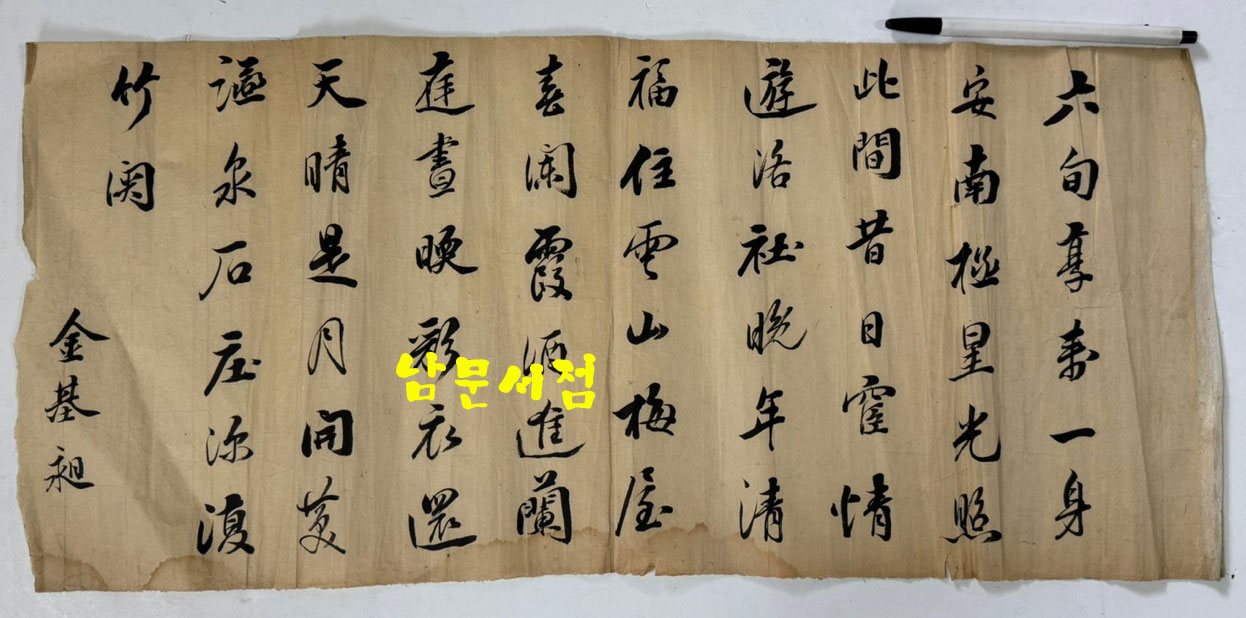 六旬享壽一身
安南極星光照
此間昔日宦情
遊洛社晚年清
福住雲山梅屋
喜霞酒進蘭
庭晝暎彩衣還
天晴是月開
讌泉石庄深復
竹関
金基昶
남문서점